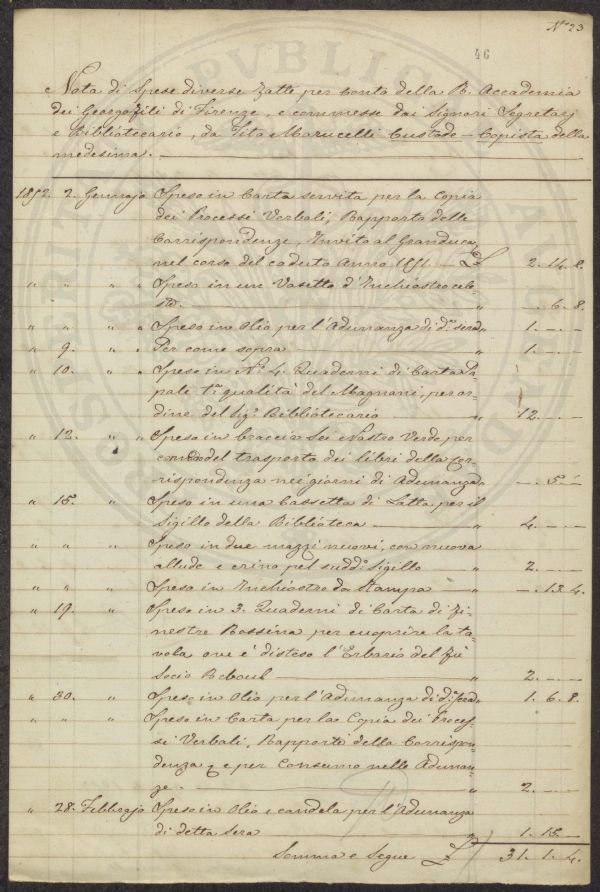 Nº 23
46
Nota di Spese diverse fatte per conto della R. Accademia
dei Georgofili di Firenze, e commesse dai Signori Segretarj
e Bibliotecario, da Tito Marucelli Custode-Copista della
medesima.
1852. 2. Gennajo Speso in Carta servita per la Copia
dei Processi Verbali, Rapporto delle
Corrispondenze, Invito al Granduca,
nel corso del caduto Anno 1851 — £ 2. 14. 8.
" " " " Speso in un Vasetto d'Inchiostro
" —. 6. 8.
" " " " Speso in Olio per l'Adunanza di dª sera " 1. — . —
" 9. " " Per come sopra " 1. — . —
" 10. " " Spese in Nº 4. Quaderni di Carta Pa-
pale 1ª qualità del Magnani, per or-
dine del Sigʳ Bibliotecario " 12. — . —
" 12. " " Speso in braccia Sei Nastro Verde per
del trasporto dei libri della Cor-
rispondenza nei giorni di Adunanza " —. 5. —
" 15. " Speso in una Cassetta di Latta per il
Sigillo della Biblioteca " 4. — . —
" " " Speso in due mazzi nuovi, con nuova
e crino pel suddº Sigillo " 2. — . —
" " " Speso in Inchiostro da Stampa " —. 13. 4.
" 19. " Speso in 3. Quaderni di Carta di Fi-
nestre Rossina per cuoprire la ta-
vola ove è disteso l'Erbario del fù
Socio Reboul " 2. — . —
" 30. " Speso in Olio per l'Adunanza di dª sera " 1. 6. 8.
" " " Speso in Carta per la Copia dei Proces-
si Verbali, Rapporti della Corrispon-
denza e per Consumo nelle Adunan-
ze. " 2. — . —
" 28. Febbrajo Speso in Olio e candela per l'Adunanza
di detta Sera " 1. 15. —
Somma e Segue £ 31. 1. 4.